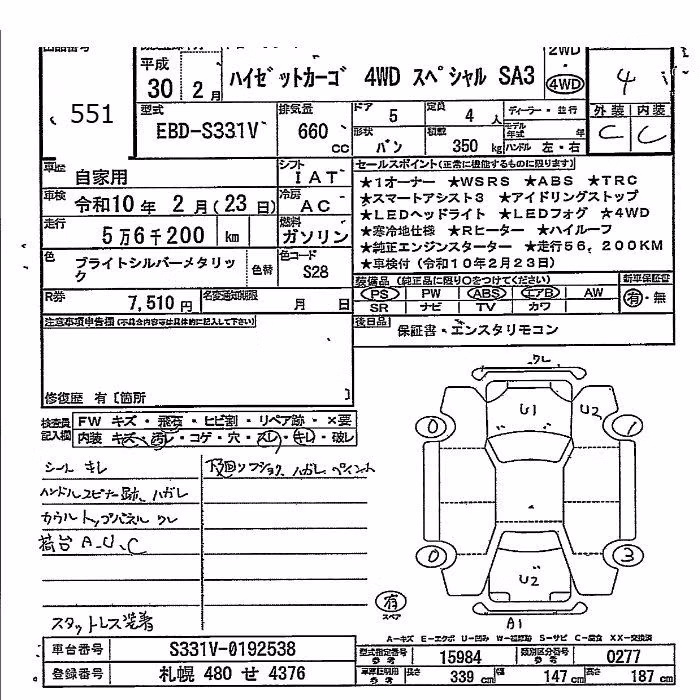 平成
30 2月
ハイゼットカーゴ 4WD スペシャル SA3
2WD
4WD
4
551
型式
EBD-S331V
排気量
660 CC
ドア 5
定員 4 人
ディーラー・並行
モデル年式 年
形状 バン
積載 350 kg
ハンドル 左・右
外装 内装
C C
車歴 自家用
シフト IAT
車検 令和10年 2月(23日)
冷房 AC
走行 5万6千200 km
燃料 ガソリン
色 ブライトシルバーメタリック
色替
色コード S28
R券 7,510円
名変通知期限 月 日
セールスポイント(正常に機能するものに限ります)
★1オーナー ★WSRS ★ABS ★TRC
★スマートアシスト3 ★アイドリングストップ
★LEDヘッドライト ★LEDフォグ ★4WD
★寒冷地仕様 ★Rヒーター ★ハイルーフ
★純正エンジンスターター ★走行56,200KM
★車検付(令和10年2月23日)
装備品(純正品に限り○をつけてください)
新車保証書
PS PW ABS エアB AW
有・無
SR ナビ TV カワ
後日品 保証書・エンスタリモコン
注意事項申告欄(不具合内容等は具体的に記入して下さい)
修復歴 有〔箇所 〕
検査員記入欄
FW キズ・飛石・ヒビ割・リペア跡・×要
内装 キズ・汚レ・コゲ・穴・スレ・キレ・破レ
シート キレ
下廻りフショク、ハガレ、ペイント
ハンドルスピナー跡、ハガレ
カウルトップパネル ワレ
荷台 A、U、C
スタットレス装着
ワレ
U1
U2
0
1
0
3
U2
A1
有
スペア
A-キズ E-エクボ U-凹み W-補修跡 S-サビ C-腐食 XX-交換済
車台番号 S331V-0192538
登録番号 札幌 480 せ 4376
型式指定番号 参考 15984
類別区分番号 参考 0277
車庫証明用 参考 長さ 339 cm 幅 147 cm 高さ 187 cm